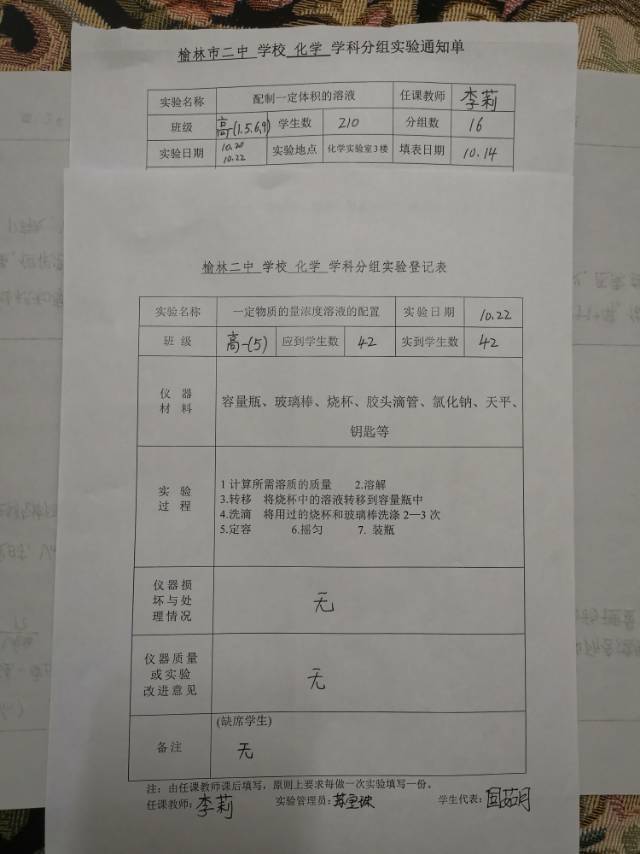 榆林市二中 学校 化学 学科分组实验通知单
实验名称 配制一定体积的溶液 任课教师 李莉
班级 高一(1.5.6.9) 学生数 210 分组数 16
实验日期 10.20 10.22 实验地点 化学实验室3楼 填表日期 10.14
榆林二中 学校 化学 学科分组实验登记表
实验名称 一定物质的量浓度溶液的配置 实验日期 10.22
班 级 高一(5) 应到学生数 42 实到学生数 42
仪 器 材 料 容量瓶、玻璃棒、烧杯、胶头滴管、氯化钠、天平、
钥匙等
实 验 过 程
1 计算所需溶质的质量 2.溶解
3.转移 将烧杯中的溶液转移到容量瓶中
4.洗滴 将用过的烧杯和玻璃棒洗涤 2—3 次
5.定容 6.摇匀 7. 装瓶
仪器损
坏与处
理情况 无
仪器质量
或实验
改进意见 无
(缺席学生)
备注 无
注：由任课教师课后填写，原则上要求每做一次实验填写一份。
任课教师：李莉 实验管理员： 学生代表：